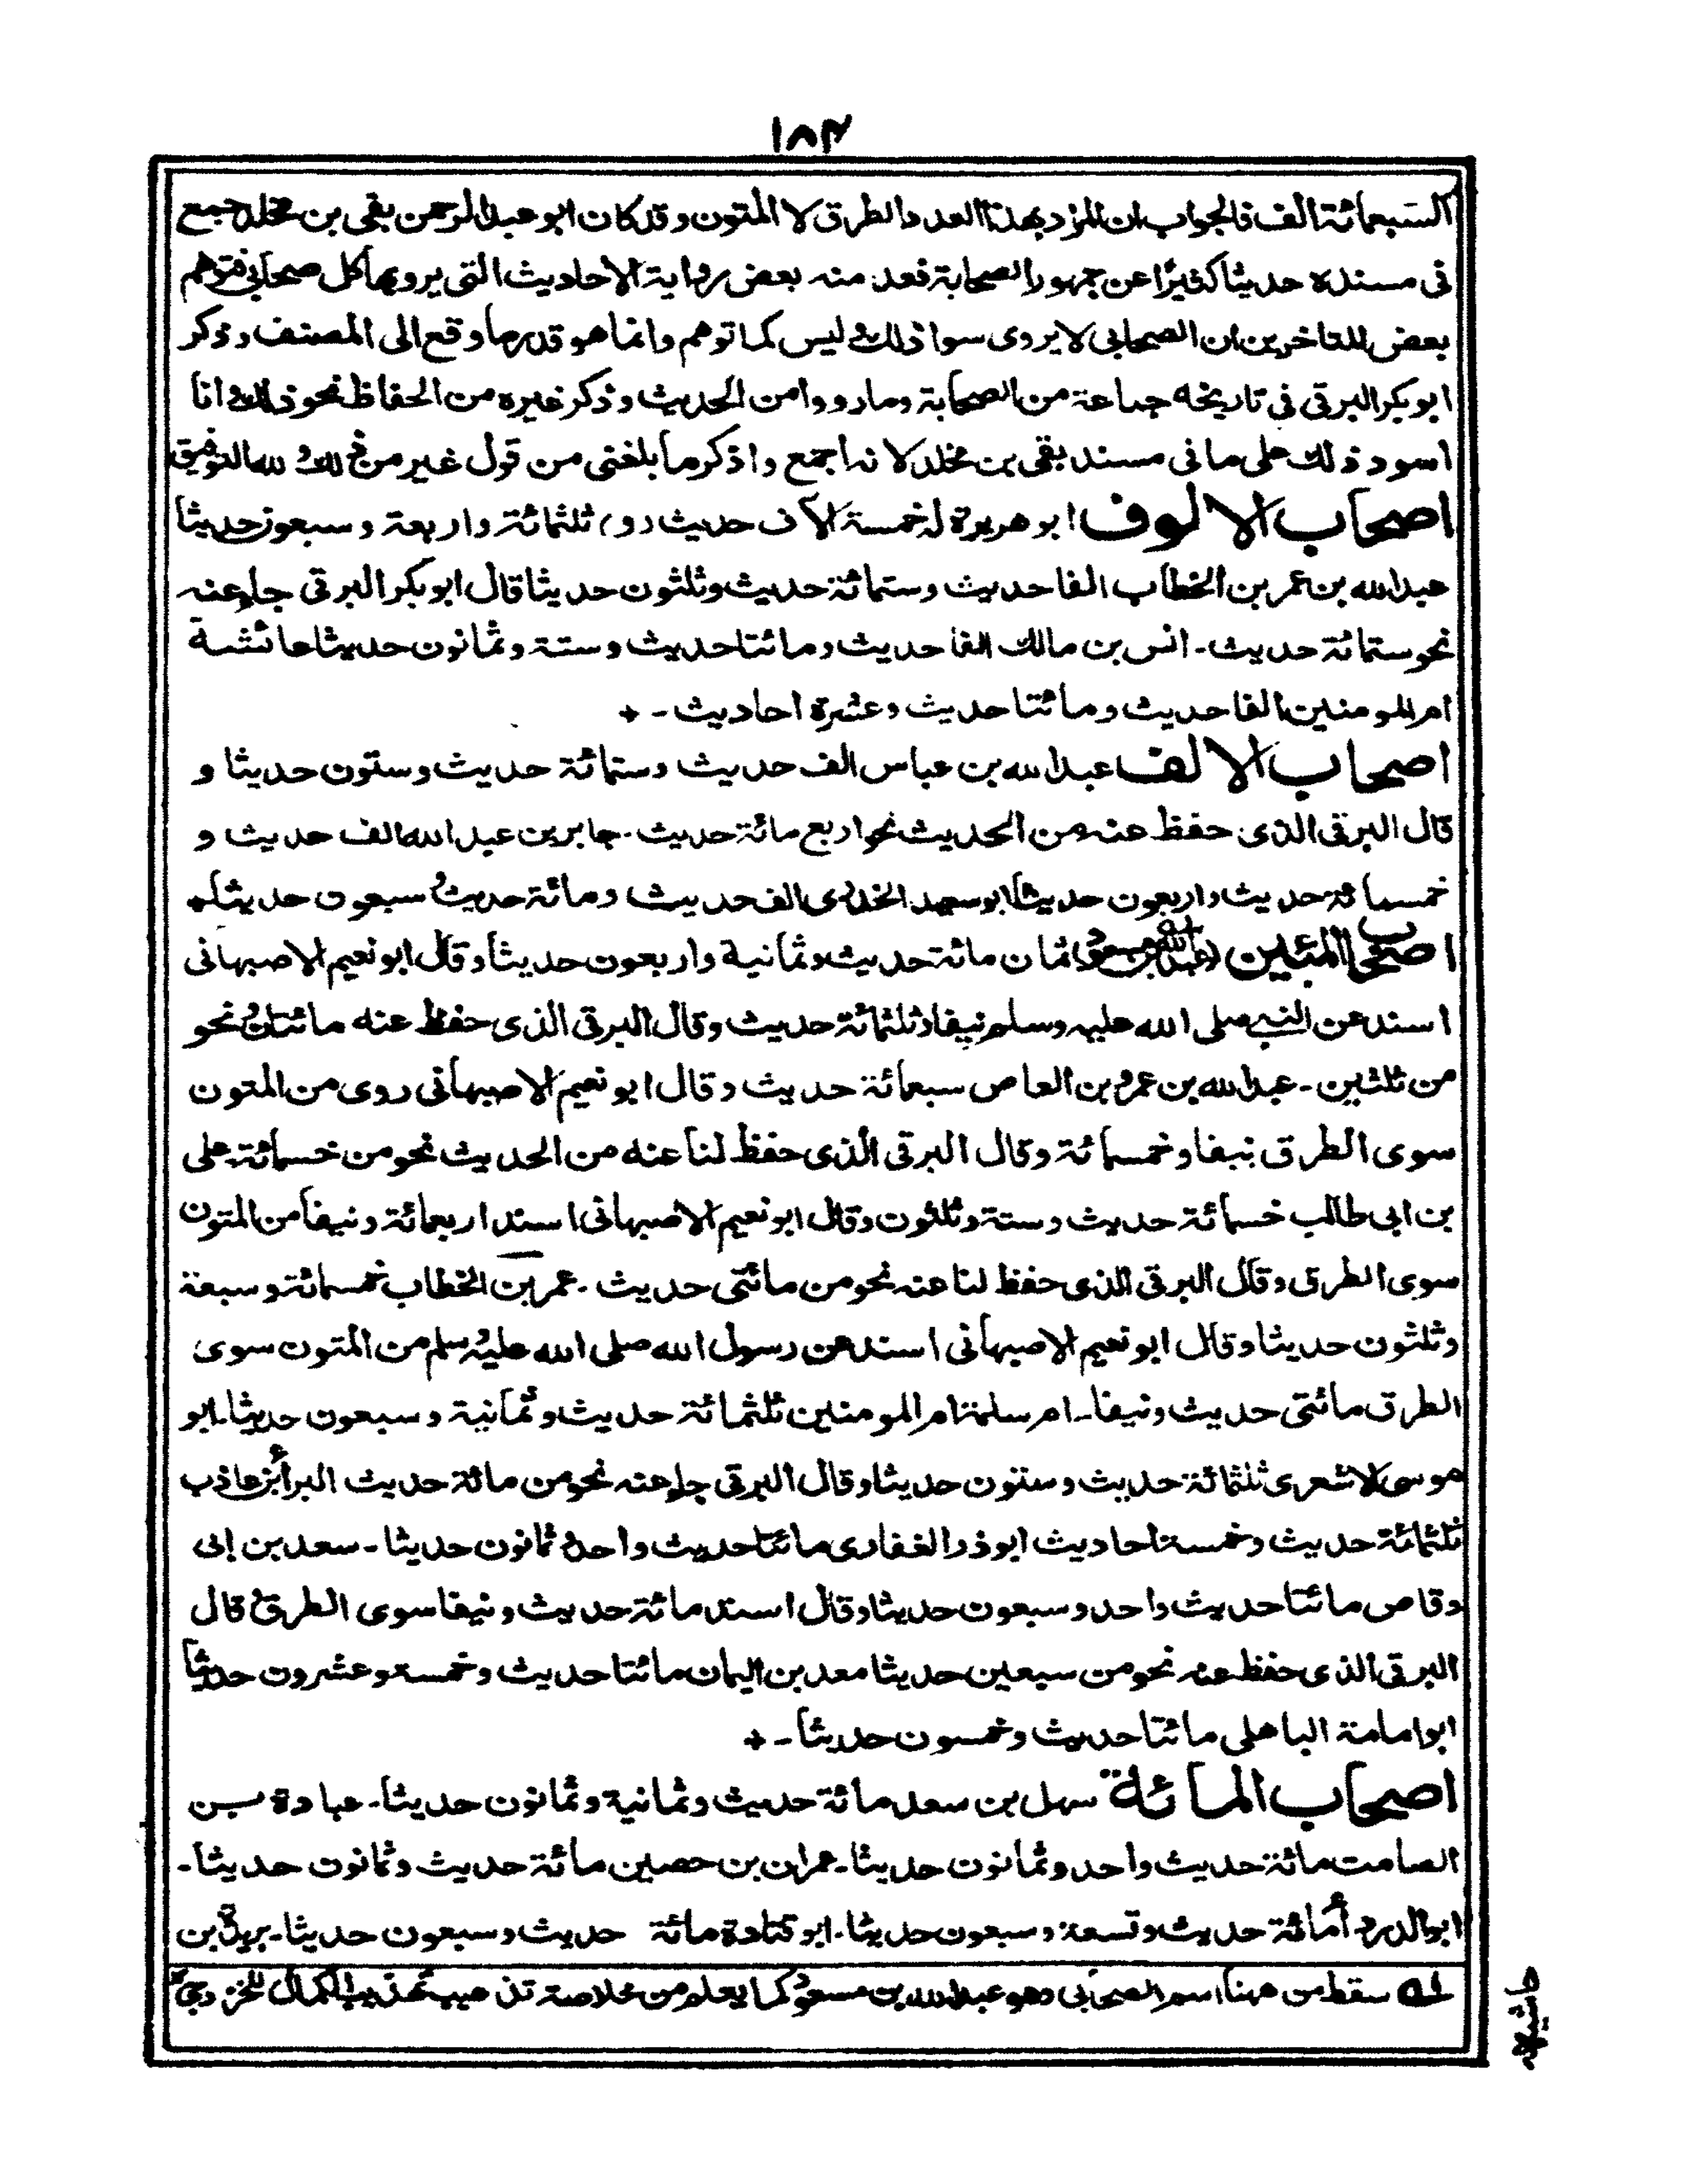 ۱۸۴
السبعمائة الف فالجواب ان المراد بهذا العدد الطرق لا المتون وقد كان ابو عبد الرحمن بقى بن مخلد جمع
فى مسنده حديثا كثيرًا عن جمهور الصحابة فعد منه بعض رواية الاحاديث التى يرويها كل صحابى فتوهم
بعض المتاخرين ان الصحابى لا يروى سوا ذلك وليس كما توهم وانما هو قدر ما وقع الى المصنف وذكر
ابو بكر البرقى فى تاريخه جماعة من الصحابة وما رووا من الحديث وذكر غيره من الحفاظ نحو ذلك وانا
اسود ذلك على ما فى مسند بقى بن مخلد لانه اجمع واذكر ما بلغنى من قول غير من ذلك وبالله التوفيق
اصحاب الالوف ابو هريرة له خمسة آلاف حديث (و) ثلثمائة واربعة وسبعون حديثا
عبد الله بن عمر بن الخطاب الفا حديث وستمائة حديث وثلثون حديثا قال ابو بكر البرقى جاء عنه
نحو ستمائة حديث - انس بن مالك الفا حديث ومائتا حديث وستة وثمانون حديثا عائشة
ام المومنين الفا حديث ومائتا حديث وعشرة احاديث - +
اصحاب الالف عبد الله بن عباس الف حديث وستمائة حديث وستون حديثا و
قال البرقى الذى حفظ عنه من الحديث نحو اربع مائة حديث - جابر بن عبد الله الف حديث و
خمسمائة حديث واربعون حديثا ابو سعيد الخدرى الف حديث ومائة حديث وسبعون حديثا +
اصحاب المئين (عبد الله بن مسعود) ثمان مائة حديث وثمانية واربعون حديثا وقال ابو نعيم الاصبهانى
اسند عن النبى صلى الله عليه وسلم نيفا وثلثمائة حديث وقال البرقى الذى حفظ عنه مائتان ونحو
من ثلثين - عبد الله بن عمرو بن العاص سبعمائة حديث وقال ابو نعيم الاصبهانى روى من المتون
سوى الطرق نيفا وخمسمائة وقال البرقى الذى حفظ لنا عنه من الحديث نحو من خمسمائة - على
بن ابى طالب خمسمائة حديث وستة وثلثون وقال ابو نعيم الاصبهانى اسند اربعمائة ونيفا من المتون
سوى الطرق وقال البرقى الذى حفظ لنا عنه نحو من مائتى حديث - عمر بن الخطاب خمسمائة وسبعة
وثلثون حديثا وقال ابو نعيم الاصبهانى اسند عن رسول الله صلى الله عليه وسلم من المتون سوى
الطرق مائتى حديث ونيفا - ام سلمة ام المومنين ثلثمائة حديث وثمانية وسبعون حديثا - ابو
موسى الاشعرى ثلثمائة حديث وستون حديثا وقال البرقى جاء عنه نحو من مائة حديث البراء بن عاذب
ثلثمائة حديث وخمسة احاديث ابو ذر الغفارى مائتا حديث واحد وثمانون حديثا - سعد بن ابى
وقاص مائتا حديث واحد وسبعون حديثا وقال اسند مائة حديث ونيفا سوى الطرق وقال
البرقى الذى حفظ عنه نحو من سبعين حديثا معد بن اليمان مائتا حديث وخمسة وعشرون حديثا
ابو امامة الباهلى مائتا حديث وخمسون حديثا - +
اصحاب المائة سهل بن سعد مائة حديث وثمانية وثمانون حديثا - عبادة بن
الصامت مائة حديث واحد وثمانون حديثا - عمران بن حصين مائة حديث وثمانون حديثا -
ابو الدرداء مائة حديث وتسعة وسبعون حديثا - ابو قتادة مائة حديث وسبعون حديثا - بريدة بن
له سقط من ههنا اسم الصحابى وهو عبد الله بن مسعود كما يعلم من خلاصة تذهيب تهذيب الكمال للخزرجى
حاشيه